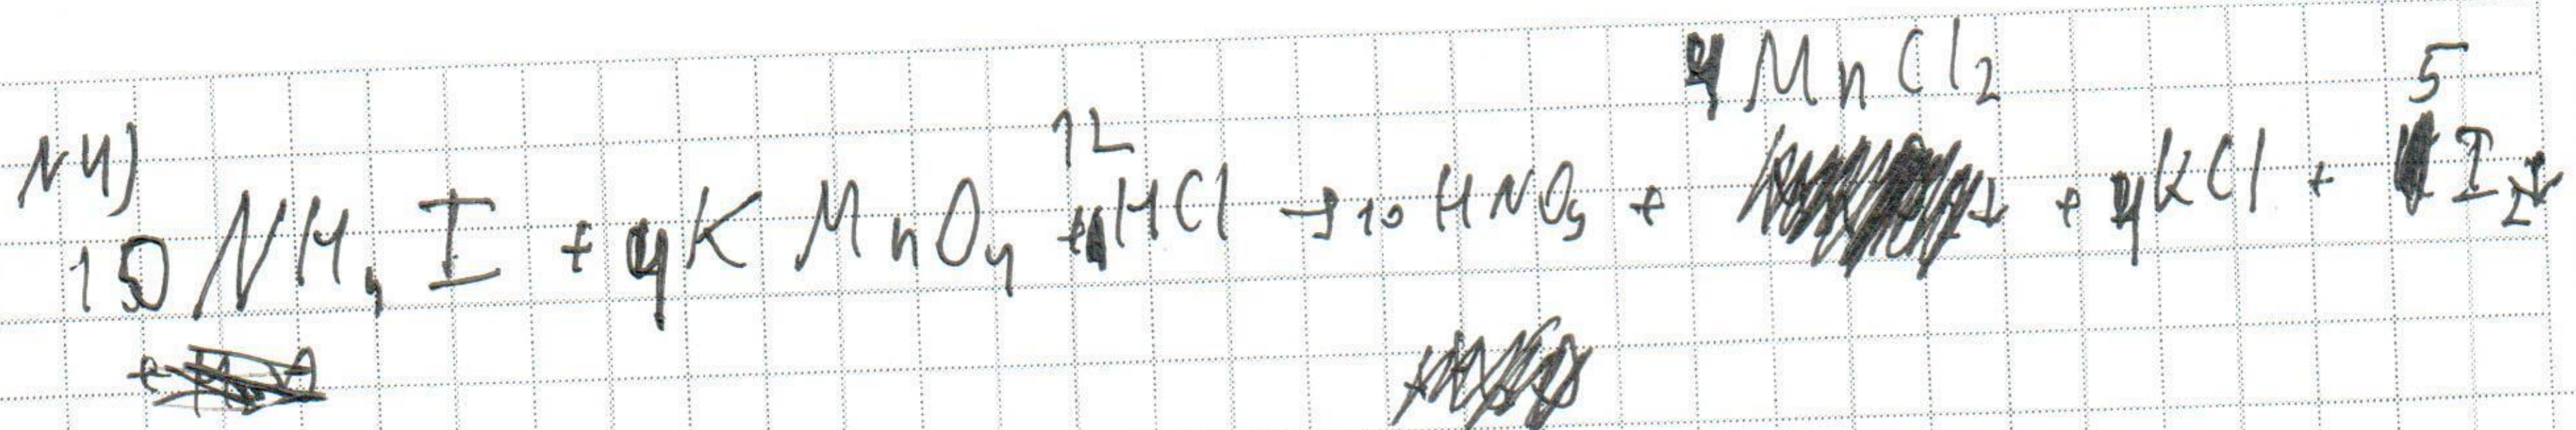 N4)
10 NH4I + 4KMnO4 + 12HCl → 10HNO3 + 4MnCl2 + 4KCl + 5I2↓